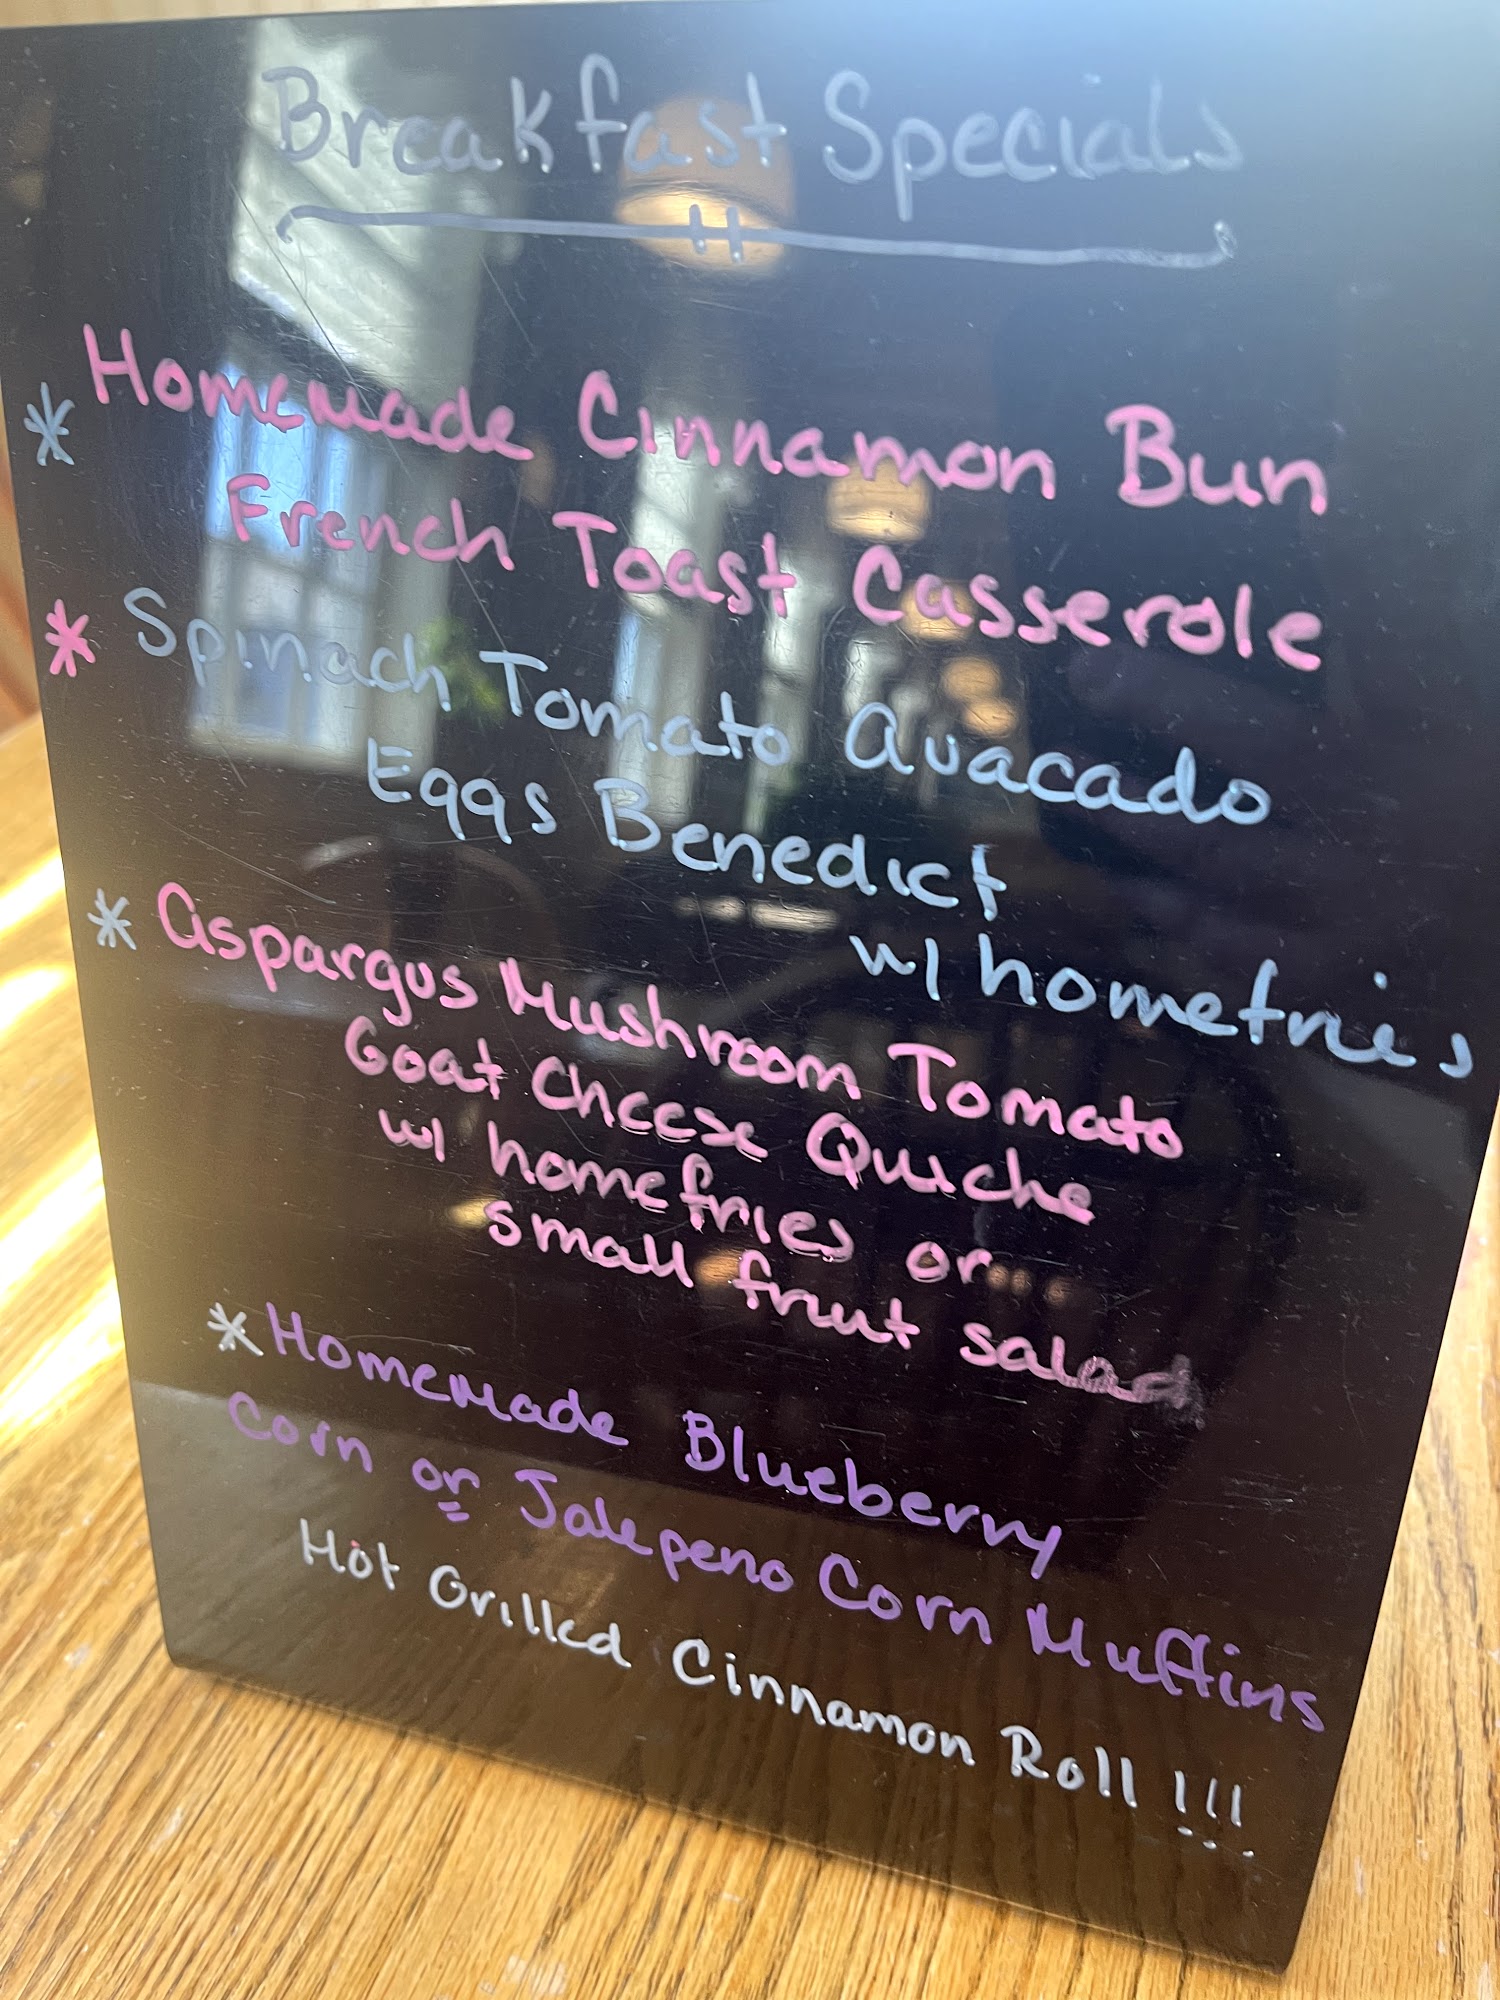 Breakfast Specials
* Homemade Cinnamon Bun
French Toast Casserole
* Spinach Tomato Avacado
Eggs Benedict
w/ homefries
* Aspargus Mushroom Tomato
Goat Cheese Quiche
w/ homefries or...
small fruit salad
* Homemade Blueberry
Corn or Jalepeno Corn Muffins
Hot Grilled Cinnamon Roll !!!